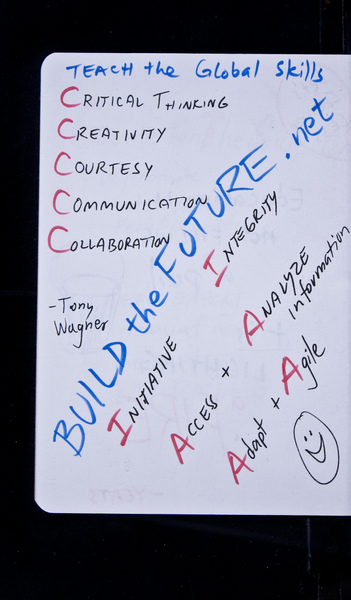 TEACH the Global Skills
CRITICAL THINKING
CREATIVITY
COURTESY
COMMUNICATION
COLLABORATION
-Tony
Wagner
BUILD the FUTURE.net
INITIATIVE
INTEGRITY
ACCESS + ANALYZE
information
Adapt + Agile